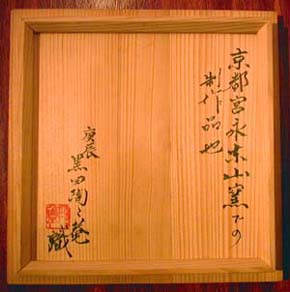 京都宮永東山窯での
制作品也
庚辰
黒田陶々菴
識